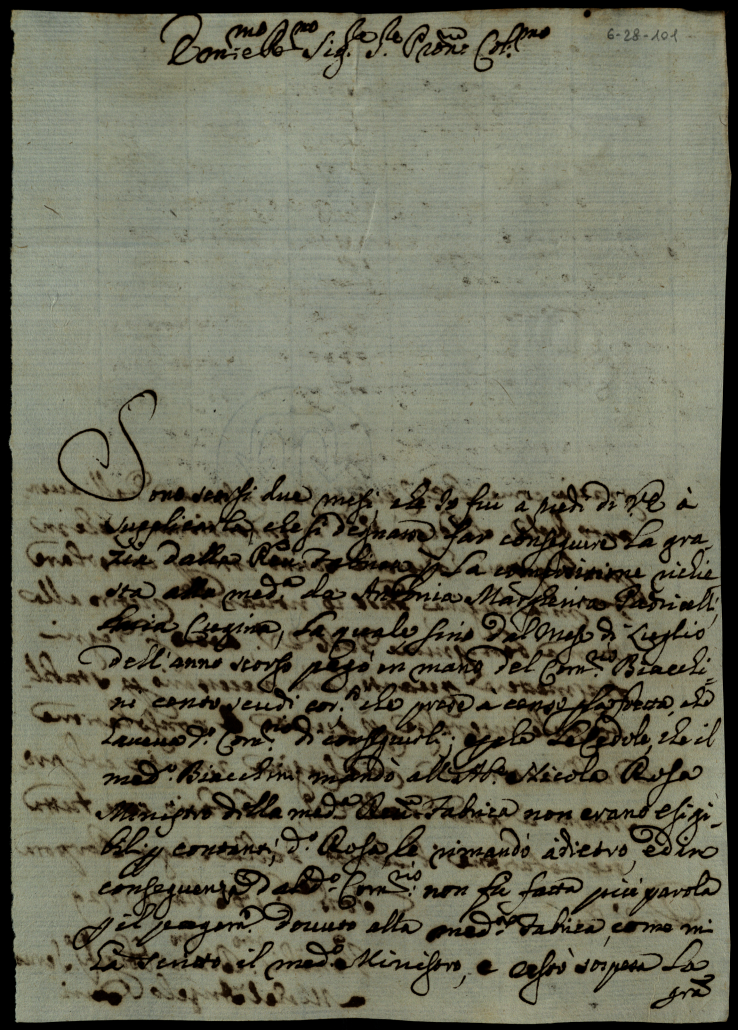 6-28-101
Em:mo e R:mo Sig.re S.re Prōn: Col:mo
Sono scorsi due mesi che Io fui a piedi di VE à
supplicarla, che si degnasse far conseguire la gra-
zia dalla Rev: Fabrica p la composizione richie-
sta alla med.a da Antonia Margherita
Cugina, la quale sino dal Mese di Luglio
dell'anno scorso pagò in mano del Com:rio Biacchi-
ni cento scudi cor.i che prese a censo p la fretta, che
haveva d.o Com:rio di conseguirli; e p le Cedole, che il
med.o Biacchini mandò all'Ab.e Nicola Rosa
Ministro della med.a Rev: Fabrica non erano esigi-
bili p contanti, d.o Rosa le rimandò adietro, ed in
conseguenza dal d.o Com:rio non fu fatta più parola
p il pagam.o dovuto alla med.ma Fabrica, come mi
ha scritto il med.o Ministro, e restò sospesa la
gra